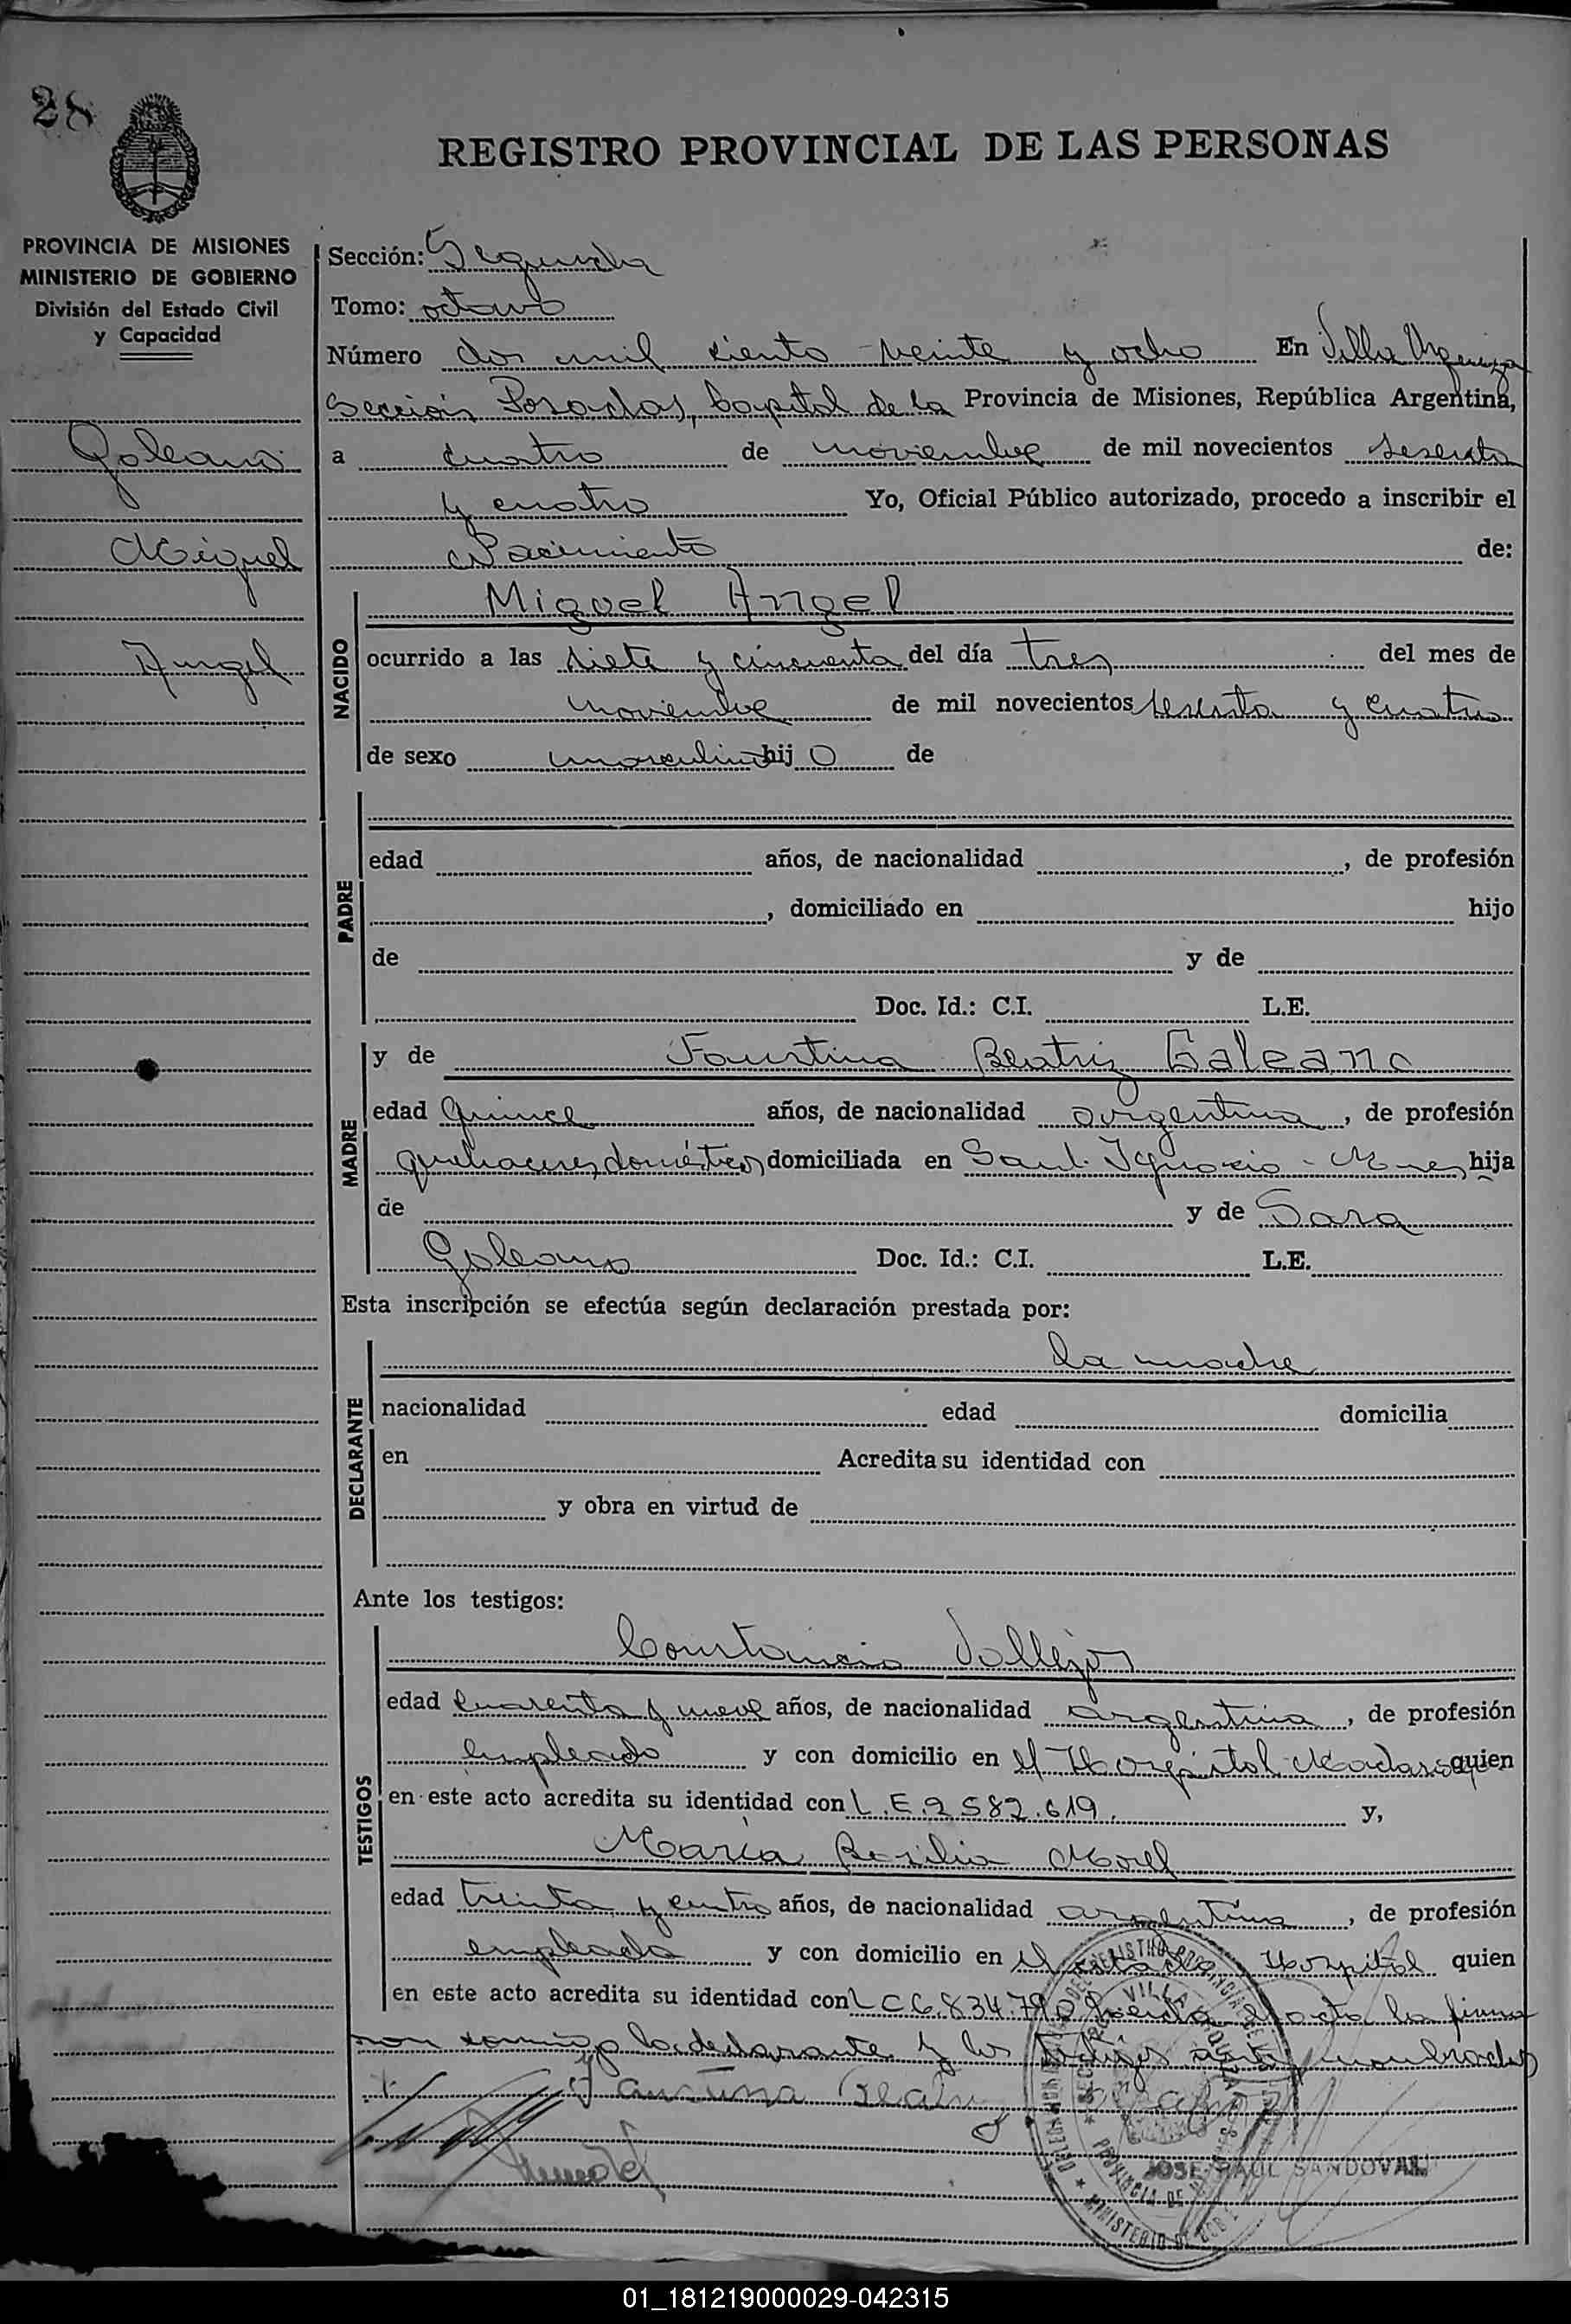 28
REGISTRO PROVINCIAL DE LAS PERSONAS
PROVINCIA DE MISIONES
MINISTERIO DE GOBIERNO
División del Estado Civil
y Capacidad
Galeano
Miguel
Angel
Sección: Segunda
Tomo: octavo
Número dos mil ciento veinte y ocho En Villa Urquiza
Sección Posadas, Capital de la Provincia de Misiones, República Argentina,
a cuatro de noviembre de mil novecientos sesenta
y cuatro Yo, Oficial Público autorizado, procedo a inscribir el
Nacimiento de:
NACIDO
Miguel Angel
ocurrido a las siete y cincuenta del día tres del mes de
noviembre de mil novecientos sesenta y cuatro
de sexo masculino hij o de
PADRE
edad años, de nacionalidad , de profesión
, domiciliado en hijo
de y de
Doc. Id.: C.I. L.E.
MADRE
y de Faustina Beatriz Galeano
edad quince años, de nacionalidad argentina, de profesión
quehaceres domésticos domiciliada en San Ignacio - Mnes, hija
de y de Sara
Galeano Doc. Id.: C.I. L.E.
Esta inscripción se efectúa según declaración prestada por:
DECLARANTE
la madre
nacionalidad edad domicilia
en Acredita su identidad con
y obra en virtud de
Ante los testigos:
TESTIGOS
Constancio Vallejos
edad cuarenta y nueve años, de nacionalidad argentina, de profesión
empleado y con domicilio en el Hospital Madariaga quien
en este acto acredita su identidad con L.E. 2582.619. y,
María Basilia Morel
edad treinta y cuatro años, de nacionalidad argentina, de profesión
empleada y con domicilio en el citado Hospital quien
en este acto acredita su identidad con L C 6.834.790 Leída el acta la firman
con conmigo la declarante y los testigos antes nombrados
Faustina Beatriz
JOSE RAUL SANDOVAL
01_181219000029-042315